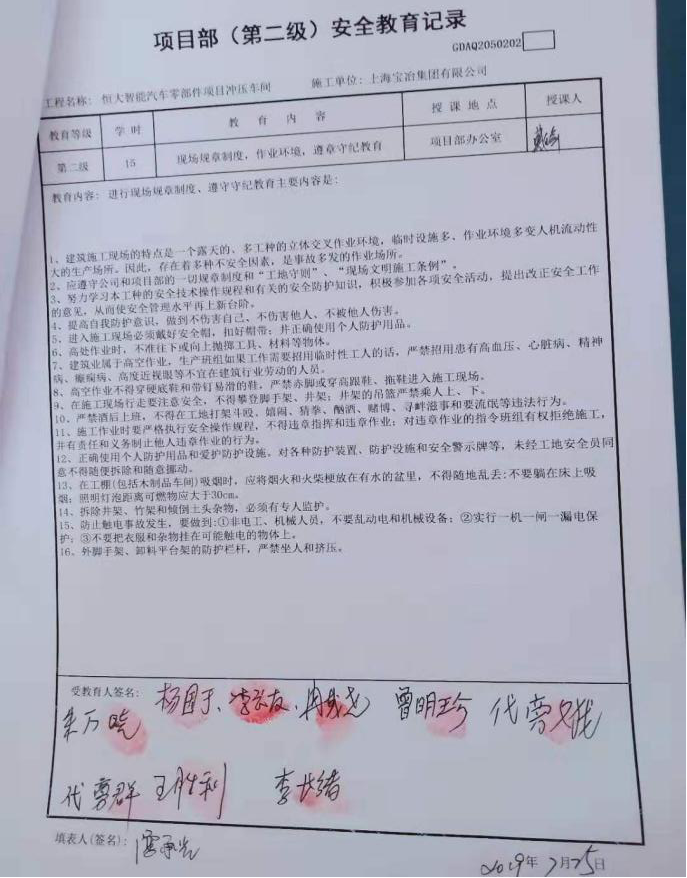 项目部（第二级）安全教育记录
GDAQ2050202
工程名称：恒大智能汽车零部件项目冲压车间 施工单位：上海宝冶集团有限公司
教育等级 学时 教育内容 授课地点 授课人
第二级 15 现场规章制度，作业环境、遵章守纪教育 项目部办公室
教育内容：进行现场规章制度、遵守守纪教育主要内容是：
1、建筑施工现场的特点是一个露天的、多工种的立体交叉作业环境，临时设施多、作业环境多变人机流动性
大的生产场所。因此，存在着多种不安全因素，是事故多发的作业场所。
2、应遵守公司和项目部的一切规章制度和“工地守则”、“现场文明施工条例”。
3、努力学习本工种的安全技术操作规程和有关的安全防护知识，积极参加各项安全活动，提出改正安全工作
的意见，从而使安全管理水平再上新台阶。
4、提高自我防护意识，做到不伤害自己、不伤害他人、不被他人伤害。
5、进入施工现场必须戴好安全帽，扣好帽带；并正确使用个人防护用品。
6、高处作业时，不准往下或向上抛掷工具、材料等物体。
7、建筑业属于高空作业，生产班组如果工作需要招用临时性工人的话，严禁招用患有高血压、心脏病、精神
病、癫痫病、高度近视眼等不宜在建筑行业劳动的人员。
8、高空作业不得穿硬底鞋和带钉易滑的鞋，严禁赤脚或穿高跟鞋、拖鞋进入施工现场。
9、在施工现场行走要注意安全，不得攀登脚手架、井架；井架的吊篮严禁乘人上、下。
10、严禁酒后上班，不得在工地打架斗殴、嬉闹、猜拳、酗酒、赌博、寻衅滋事和耍流氓等违法行为。
11、施工作业时要严格执行安全操作规程，不得违章指挥和违章作业；对违章作业的指令班组有权拒绝施工，
并有责任和义务制止他人违章作业的行为。
12、正确使用个人防护用品和爱护防护设施，对各种防护装置、防护设施和安全警示牌等，未经工地安全员同
意不得随便拆除和随意挪动。
13、在工棚(包括木制品车间)吸烟时，应将烟火和火柴梗放在有水的盆里，不得随地乱丢；不要躺在床上吸
烟；照明灯泡距离可燃物应大于30cm。
14、拆除井架、竹架和倾倒土头杂物，必须有专人监护。
15、防止触电事故发生，要做到：①非电工、机械人员，不要乱动电和机械设备；②实行一机一闸一漏电保
护；③不要把衣服和杂物挂在可能触电的物体上。
16、外脚手架、卸料平台架的防护栏杆，严禁坐人和挤压。
受教育人签名：杨国于、曾明珍
王胜利 李长绪
填表人(签名)：
2019年7月25日